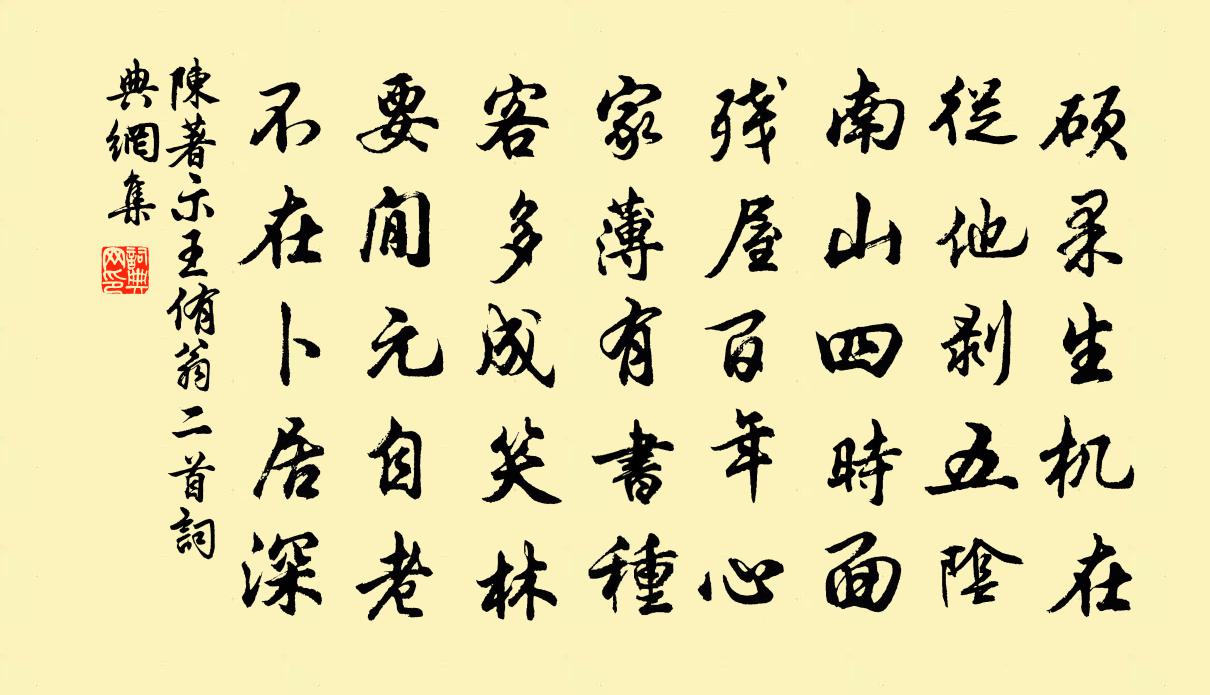 硕果生机在
從他剥五陰
南山四時面
殘屋百年心
家薄有書種
客多成笑林
要閒元自老
不在卜居深
陳著示王侑翁二首詞
典網集
詞典网印